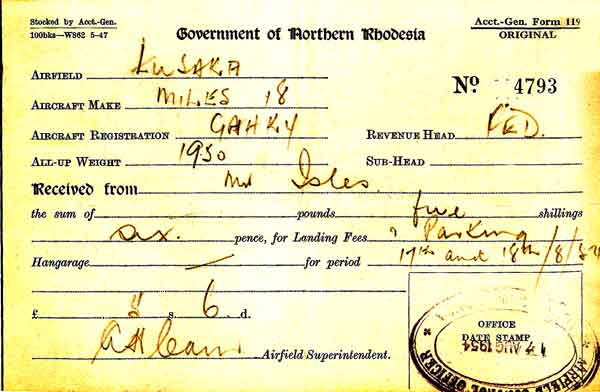 Stocked by Acct.-Gen.
100bks—W862 5-47
Acct.-Gen. Form 119
ORIGINAL
Government of Northern Rhodesia
AIRFIELD LUSAKA
No. 4793
AIRCRAFT MAKE MILES 18
AIRCRAFT REGISTRATION GAHKY
REVENUE HEAD FED.
ALL-UP WEIGHT 1950
SUB-HEAD
Received from Mr Isles.
the sum of pounds five shillings
six. pence, for Landing Fees & Parking
Hangarage — for period 17th and 18th/8/54
£ 5 s. 6 d.
Airfield Superintendent.
OFFICE
DATE STAMP
17 AUG 1954